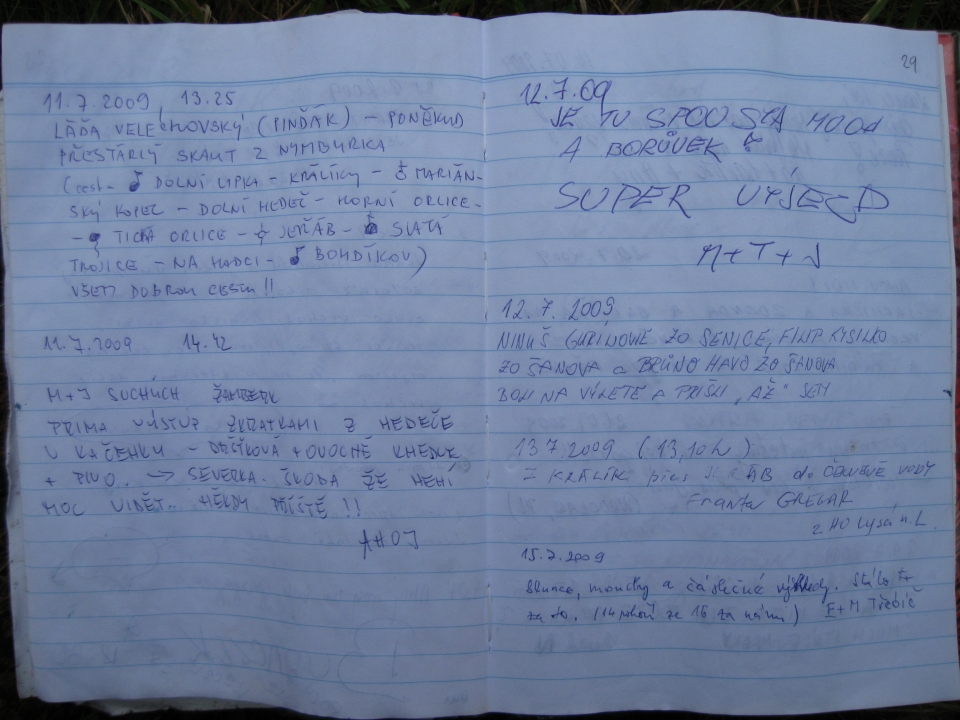 11.7.2009, 13.25
LÁĎA VELECHOVSKÝ (PINĎÁK) – PONĚKUD
PŘESTÁRLÝ SKAUT Z NYMBURKA
(cest- DOLNÍ LIPKA – KRÁLÍKY – MARIÁN-
SKÝ KOPEC – DOLNÍ HEDEČ – HORNÍ ORLICE-
- TICHÁ ORLICE – JEŘÁB – SVATÁ
TROJICE – NA HADCI – BOHDÍKOV)
VŠEM DOBROU CESTU!!
11.7.2009 14.42
M+J SUCHÝCH ŽAMBERK
PRIMA VÝSTUP ZKRATKAMI Z HEDEČE
U KAČENKY – DRŠŤKOVÁ + OVOCNÉ KNEDLE
+ PIVO. → SEVERKA. ŠKODA ŽE NENÍ
MOC VIDĚT.. NĚKDY PŘÍŠTĚ !!
AHOJ
29
12.7.09
JE TU SPOUSTA HUB
A BORŮVEK
SUPER VÝJEZD
M+T+J
12.7.2009
ZO SENICE, FILIP KYSILKO
ZO ŠANOVA a BRUNO ZO ŠANOVA
BOLI NA VÝLETE A PRIŠLI „AŽ" SEM
13.7.2009 (13,10h)
Z KRÁLÍK přes JEŘÁB do ČERVENÉ VODY
Franta GREGAR
z HO Lysá n. L.
15.7.2009
Slunce, mouchy a částečné výhledy. Stálo to
za to. (14 ze 16 za námi) E+M Třebíč